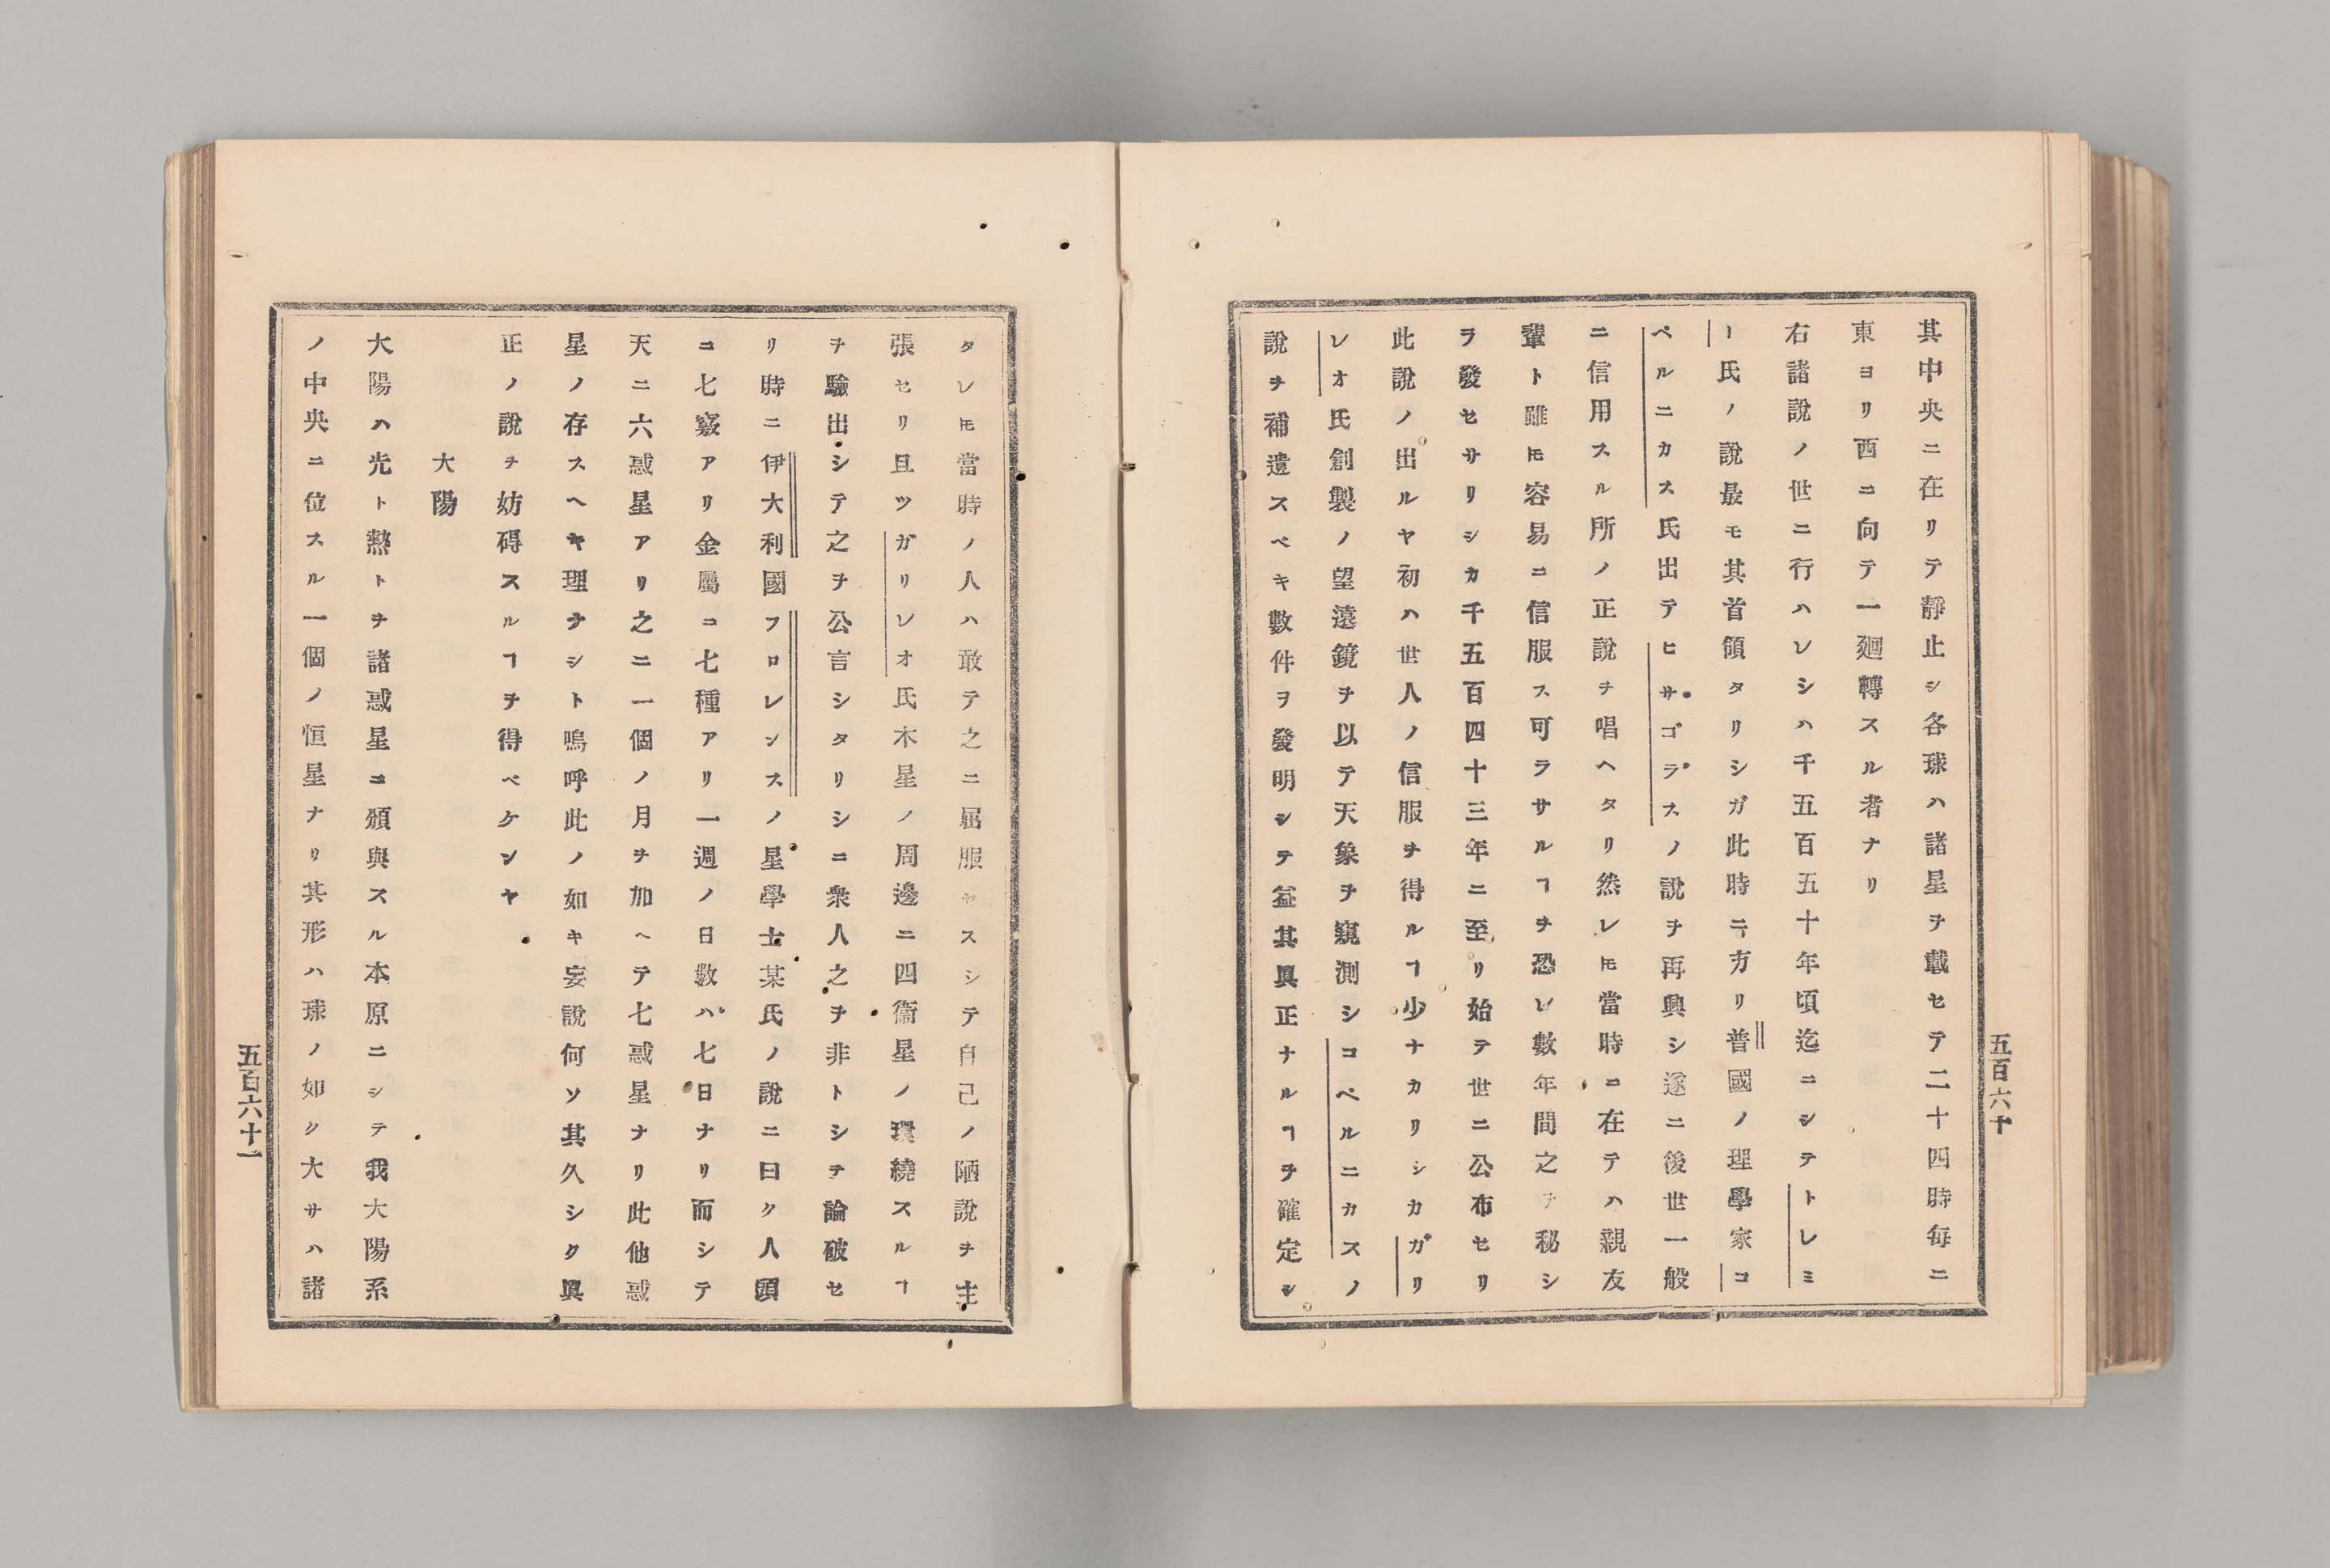 其中央ニ在リテ靜止シ各球ハ諸星ヲ載セテ二十四時每ニ
東ヨリ西ニ向テ一廻轉スル者ナリ
右諸說ノ世ニ行ハレシハ千五百五十年頃迄ニシテトレミ
ー氏ノ說最モ其首領タリシガ此時ニ方リ普國ノ理學家コ
ペルニカス氏出テヒサゴラスノ說ヲ再興シ遂ニ後世一般
ニ信用スル所ノ正說ヲ唱ヘタリ然レ𪜈當時ニ在テハ親友
輩ト雖𪜈容易ニ信服ス可ラサルヿヲ恐レ數年間之ヲ秘シ
ヲ發セサリシカ千五百四十三年ニ至リ始テ世ニ公布セリ
此說ノ出ルヤ初ハ世人ノ信服ヲ得ルヿ少ナカリシカガリ
レオ氏創製ノ望遠鏡ヲ以テ天象ヲ窺測シコペルニカスノ
說ヲ補遺スベキ數件ヲ發明シテ益其眞正ナルヿヲ確定シ
五百六十
タレ𪜈當時ノ人ハ敢テ之ニ屈服セスシテ自己ノ陋說ヲ主
張セリ且ツガリレオ氏木星ノ周邊ニ四衞星ノ環繞スルヿ
ヲ驗出シテ之ヲ公言シタリシニ衆人之ヲ非トシテ論破セ
リ時ニ伊大利國フロレンスノ星學士某氏ノ說ニ曰ク人頭
ニ七竅アリ金屬ニ七種アリ一週ノ日數ハ七日ナリ而シテ
天ニ六惑星アリ之ニ一個ノ月ヲ加ヘテ七惑星ナリ此他惑
星ノ存スヘキ理ナシト嗚呼此ノ如キ妄說何ソ其久シク眞
正ノ說ヲ妨碍スルヿヲ得ベケンヤ
大陽
大陽ハ光ト熱トヲ諸惑星ニ頒與スル本原ニシテ我大陽系
ノ中央ニ位スル一個ノ恒星ナリ其形ハ球ノ如ク大サハ諸
五百六十一